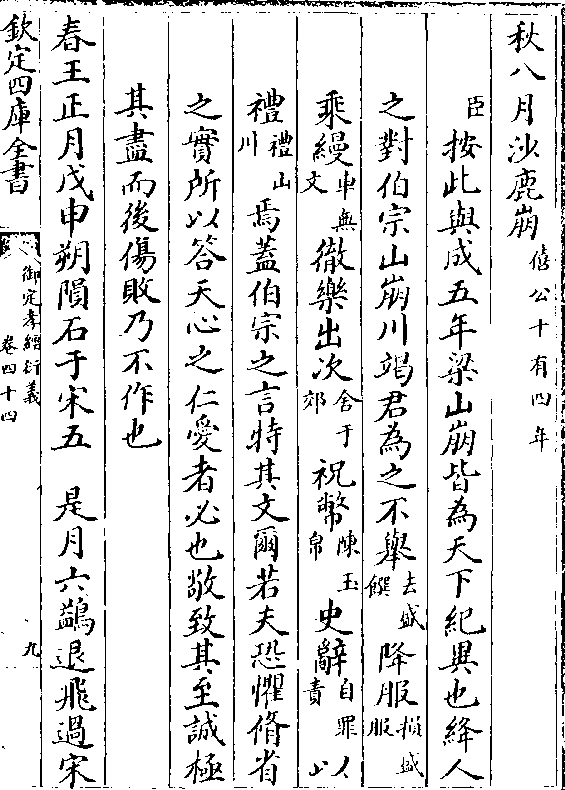 秋八月沙鹿崩僖公十有四年
臣按此與成五年梁山崩皆為天下紀異也絳人
之對伯宗山崩川竭君為之不舉去盛饌降服損盛服
乘縵車無文徹樂出次舍于郊祝幣陳玉帛史辭自罪責以
禮禮山川焉蓋伯宗之言特其文爾若夫恐懼脩省
之實所以答天心之仁愛者必也敬致其至誠極
其盡而後傷敗乃不作也
春王正月戊申朔隕石于宋五　是月六鷁退飛過宋
欽定四庫全書
御定孝經衍義
卷四十四
九